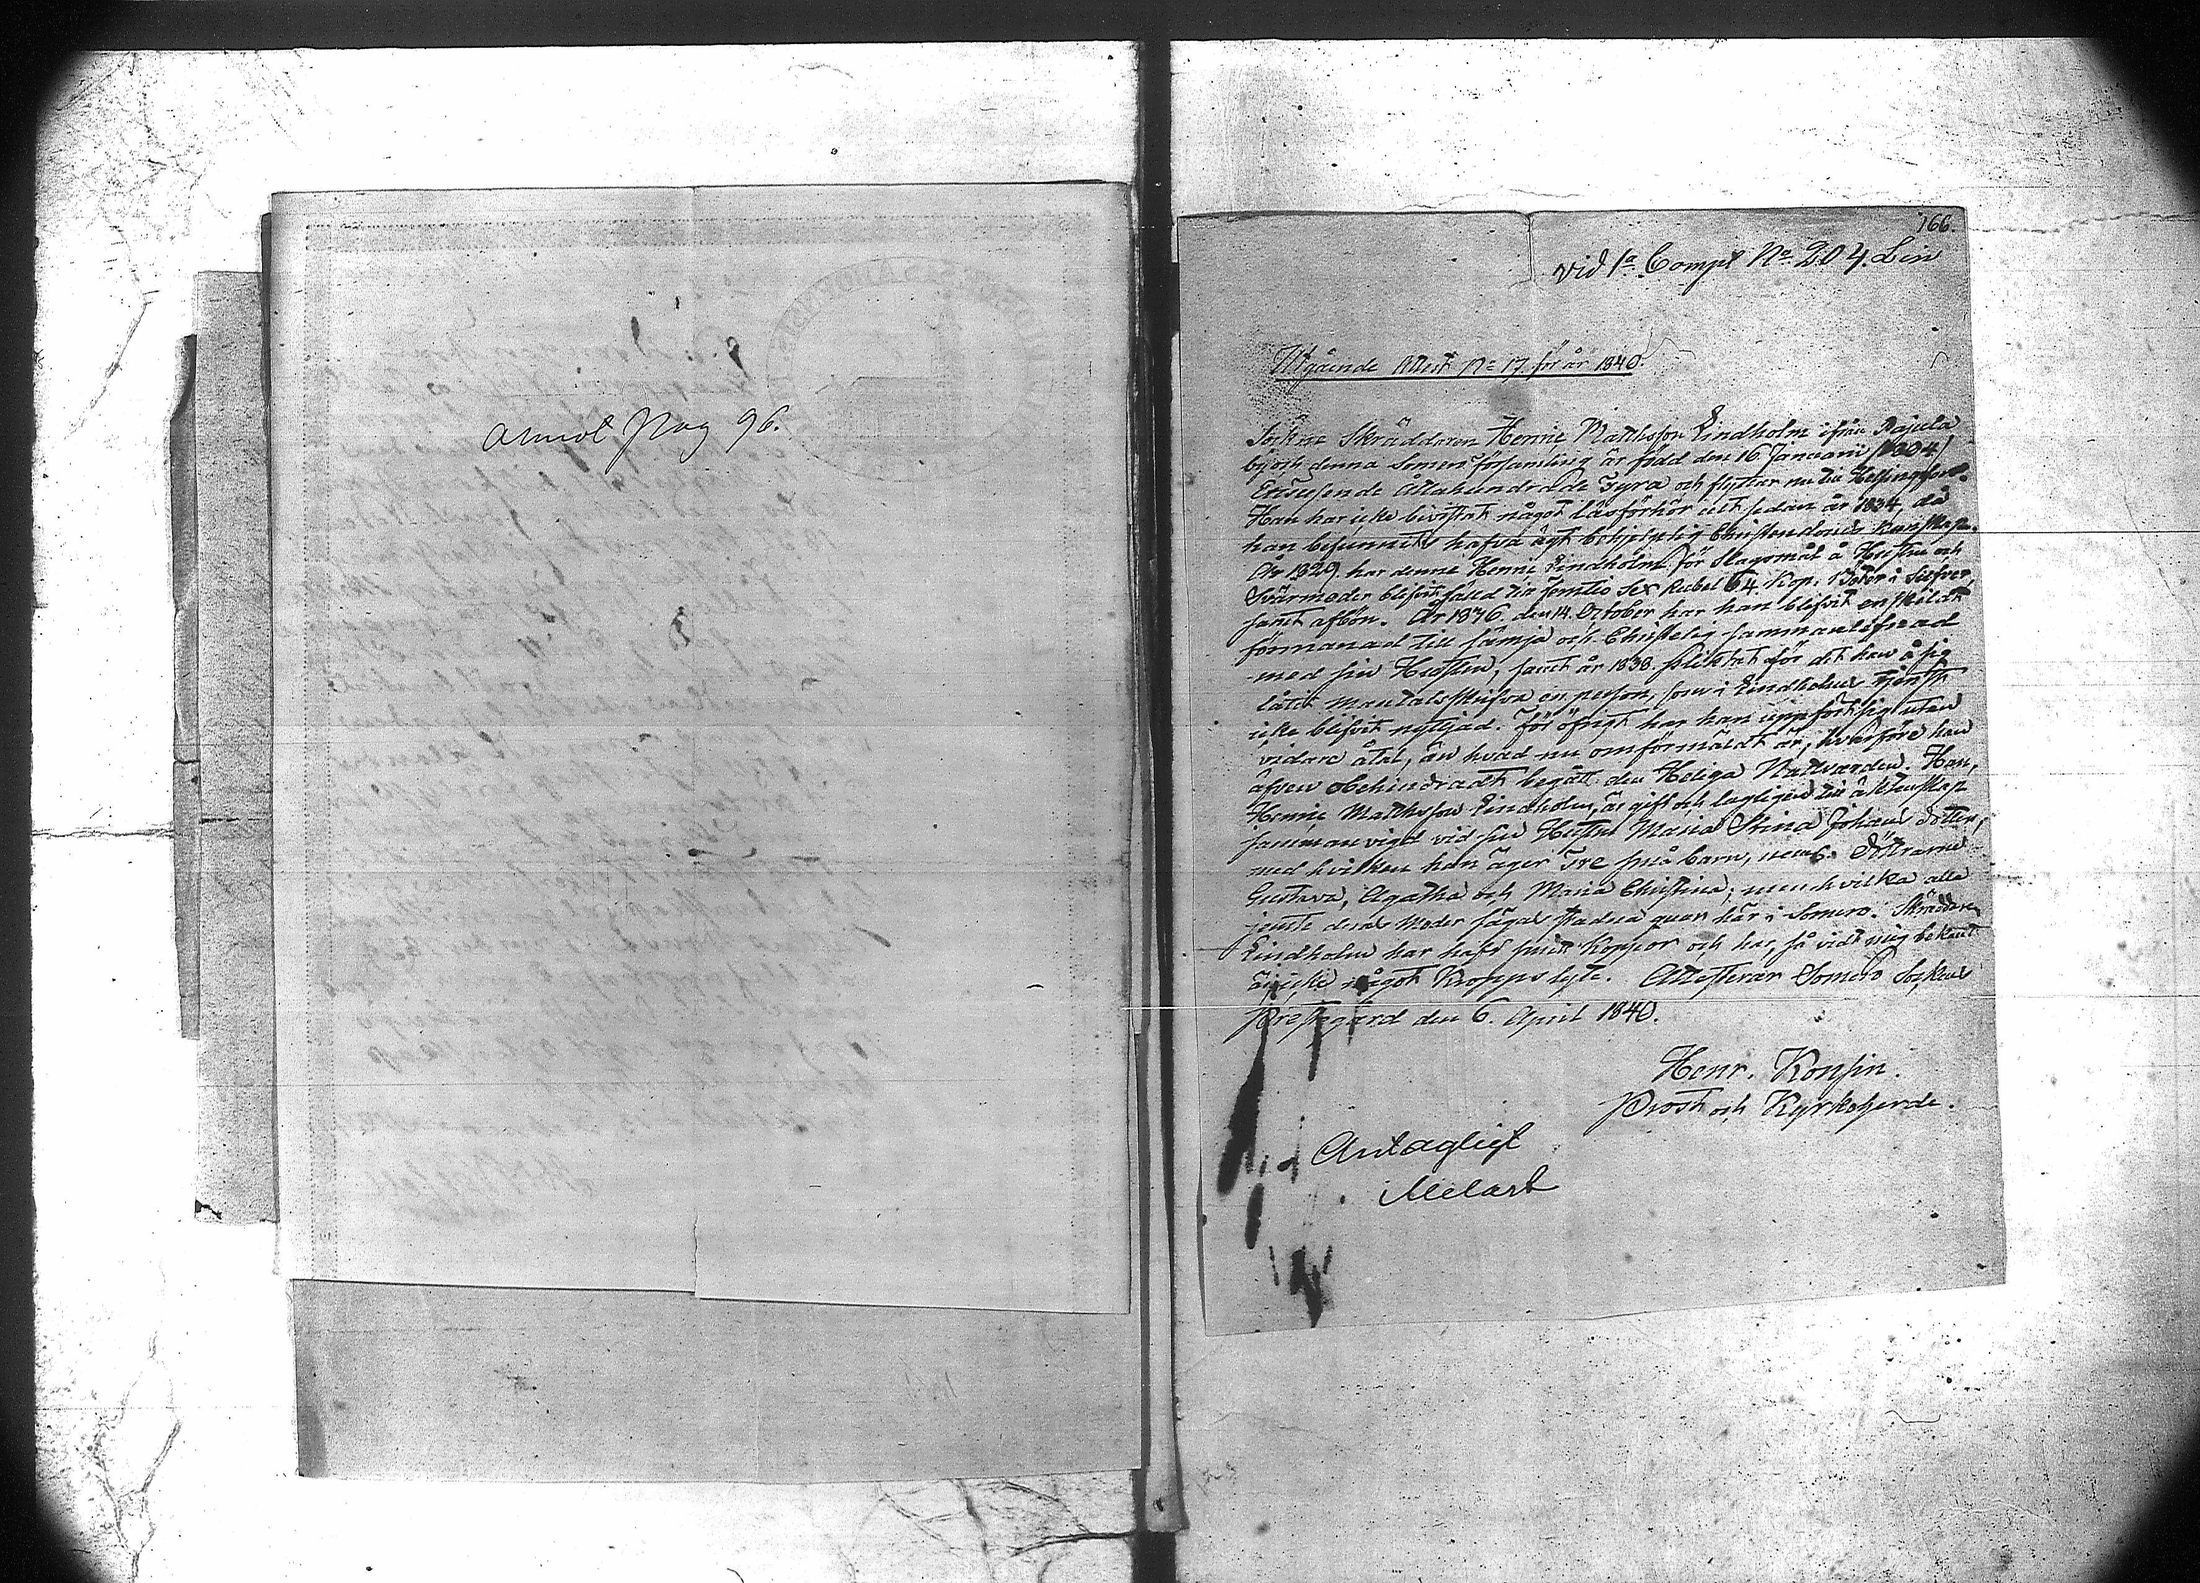 annot pag 96.
166.
vid 1a Compt No 204. Lin
Utgående Attest No 17 för år 1840.
Sockne Skräddaren Henric Matthsson Lindholm ifrån Pajula
by och denna Somero församling är född den 16 Januarii (1804)
Ettusende Åttahundrade Fyra och flyttar nu till Helsingfors.
Han har icke bivistat något läsförhör allt sedan år 1834, då
han befunnits hafva ägt behjelplig Christendoms kunskap.
År 1829. har denne Henric Lindholm för Slagsmål å Hustru och
Svärmoder blifvit fälld till femtio sex Rubel 64. Kop. Böter i Silfver,
samt afbön. År 1836. den 14. October har han blifvit enskildt
förmanad till sämja och Christelig sammanlefnad
med sin Hustru, samt år 1838. pliktat för det han å sig
låtit mantalsskrifva en person, som i Lindholms tjenst
icke blifvit nyttjad. För öfrigt har han uppfört sig utan
vidare åtal, än hvad nu omförmäldt är, hvarföre han
äfven obehindradt begått den Heliga Nattvarden. Han,
Henric Matthsson Lindholm, är gift och lagligen till äktenskap
sammanvigd vid sin Hustru Maria Stina Johans dotter,
med hvilken han äger Tre små barn, neml. Döttrarne
Gustava, Agatha och Maria Christina; men hvilka alla
jemte deras Moder sägas stadna quar här i Somero. Skräddaren
Lindholm har haft smitt Koppor och har, så vidt mig bekant
är, icke något Kroppslyte. Attesterar Somero Sockens
Prestegård den 6. April 1840.
Henr. Konsin.
Prost och Kyrkoherde.
Antagligt
Melart